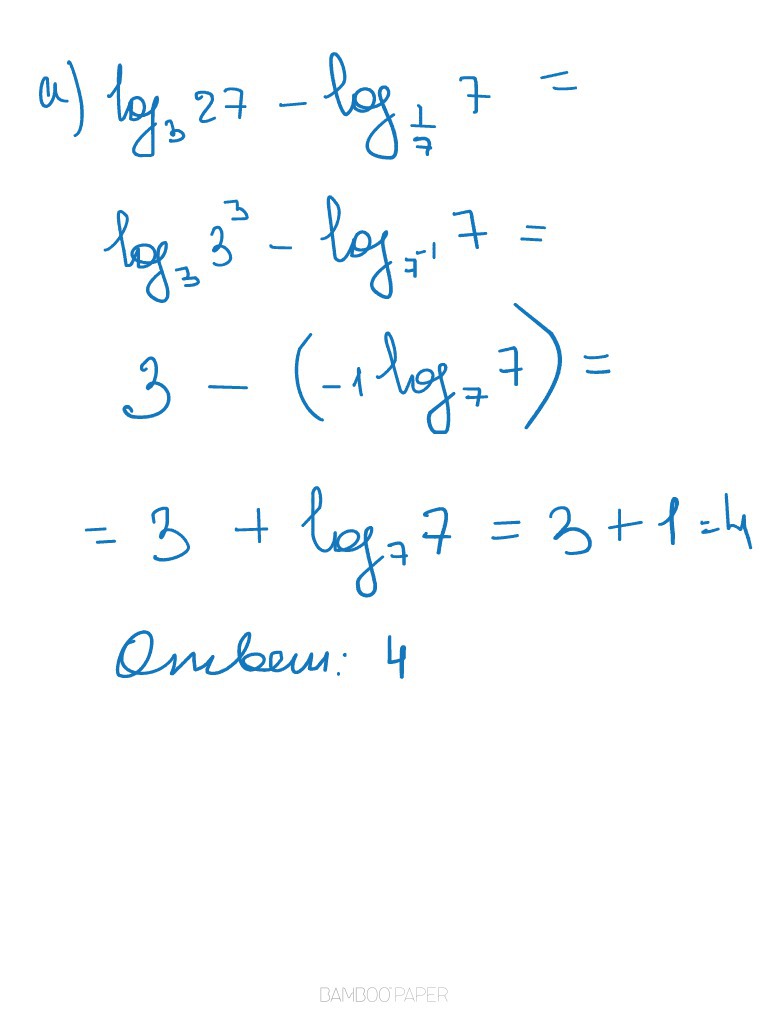 а) log₃ 27 - log_{1/7} 7 =
log₃ 3³ - log_{7⁻¹} 7 =
3 - (-1 log₇ 7) =
= 3 + log₇ 7 = 3 + 1 = 4
Ответ: 4
BAMBOO PAPER